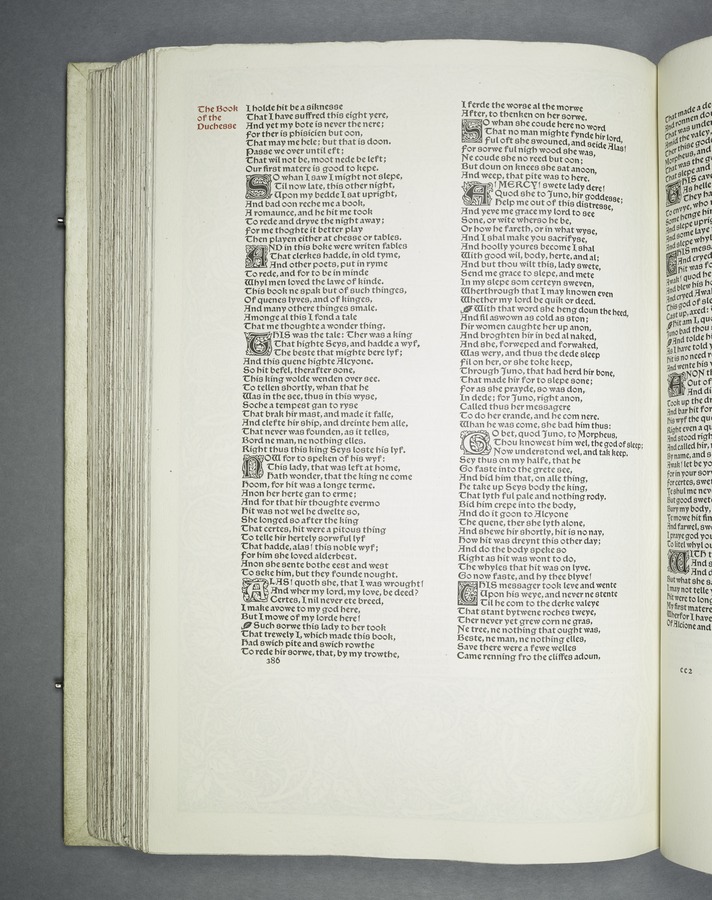 The Book
of the
Duchesse
I holde hit be a siknesse
That I have suffred this eight yere,
And yet my bote is never the nere;
For ther is phisicien but oon,
That may me hele; but that is doon.
Passe we over until eft;
That wil not be, moot nede be left;
Our first matere is good to kepe.
SO whan I saw I might not slepe,
Til now late, this other night,
Upon my bedde I sat upright,
And bad oon reche me a book,
A romaunce, and he hit me took
To rede and dryve the night away;
For me thoghte it better play
Then playen either at chesse or tables.
AND in this boke were writen fables
That clerkes hadde, in old tyme,
And other poets, put in ryme
To rede, and for to be in minde
Whyl men loved the lawe of kinde.
This book ne spak but of such thinges,
Of quenes lyves, and of kinges,
And many othere thinges smale.
Amonge al this I fond a tale
That me thoughte a wonder thing.
THIS was the tale: Ther was a king
That highte Seys, and hadde a wyf,
The beste that mighte bere lyf;
And this quene highte Alcyone.
So hit befel, therafter sone,
This king wolde wenden over see.
To tellen shortly, whan that he
Was in the see, thus in this wyse,
Soche a tempest gan to ryse
That brak hir mast, and made it falle,
And clefte hir ship, and dreinte hem alle,
That never was founden, as it telles,
Bord ne man, ne nothing elles.
Right thus this king Seys loste his lyf.
NOW for to speken of his wyf:
This lady, that was left at home,
Hath wonder, that the king ne come
Hoom, for hit was a longe terme.
Anon her herte gan to erme;
And for that hir thoughte evermo
Hit was not wel he dwelte so,
She longed so after the king
That certes, hit were a pitous thing
To telle hir hertely sorwful lyf
That hadde, alas! this noble wyf;
For him she loved alderbest.
Anon she sente bothe eest and west
To seke him, but they founde nought.
ALAS! quoth she, that I was wrought!
And wher my lord, my love, be deed?
Certes, I nil never ete breed,
I make avowe to my god here,
But I mowe of my lorde here!
Such sorwe this lady to her took
That trewely I, which made this book,
Had swich pite and swich rowthe
To rede hir sorwe, that, by my trowthe,
286
I ferde the worse al the morwe
After, to thenken on her sorwe.
SO whan she coude here no word
That no man mighte fynde hir lord,
Ful oft she swouned, and seide Alas!
For sorwe ful nigh wood she was,
Ne coude she no reed but oon;
But doun on knees she sat anoon,
And weep, that pite was to here.
A! MERCY! swete lady dere!
Quod she to Juno, hir goddesse;
Help me out of this distresse,
And yeve me grace my lord to see
Sone, or wite wherso he be,
Or how he fareth, or in what wyse,
And I shal make you sacrifyse,
And hoolly youres become I shal
With good wil, body, herte, and al;
And but thou wilt this, lady swete,
Send me grace to slepe, and mete
In my slepe som certeyn sweven,
Wherthrough that I may knowen even
Whether my lord be quik or deed.
With that word she heng doun the heed,
And fil aswown as cold as ston;
Hir women caughte her up anon,
And broghten hir in bed al naked,
And she, forweped and forwaked,
Was wery, and thus the dede sleep
Fil on her, or she toke keep,
Through Juno, that had herd hir bone,
That made hir for to slepe sone;
For as she prayde, so was don,
In dede; for Juno, right anon,
Called thus her messagere
To do her erande, and he com nere.
Whan he was come, she bad him thus:
GO bet, quod Juno, to Morpheus,
Thou knowest him wel, the god of sleep;
Now understond wel, and tak keep.
Sey thus on my halfe, that he
Go faste into the grete see,
And bid him that, on alle thing,
He take up Seys body the king,
That lyth ful pale and nothing rody.
Bid him crepe into the body,
And do it goon to Alcyone
The quene, ther she lyth alone,
And shewe hir shortly, hit is no nay,
How hit was dreynt this other day;
And do the body speke so
Right as hit was wont to do,
The whyles that hit was on lyve.
Go now faste, and hy thee blyve!
THIS messager took leve and wente
Upon his weye, and never ne stente
Til he com to the derke valeye
That stant bytwene roches tweye,
Ther never yet grew corn ne gras,
Ne tree, ne nothing that ought was,
Beste, ne man, ne nothing elles,
Save there were a fewe welles
Came renning fro the cliffes adoun,
cc2